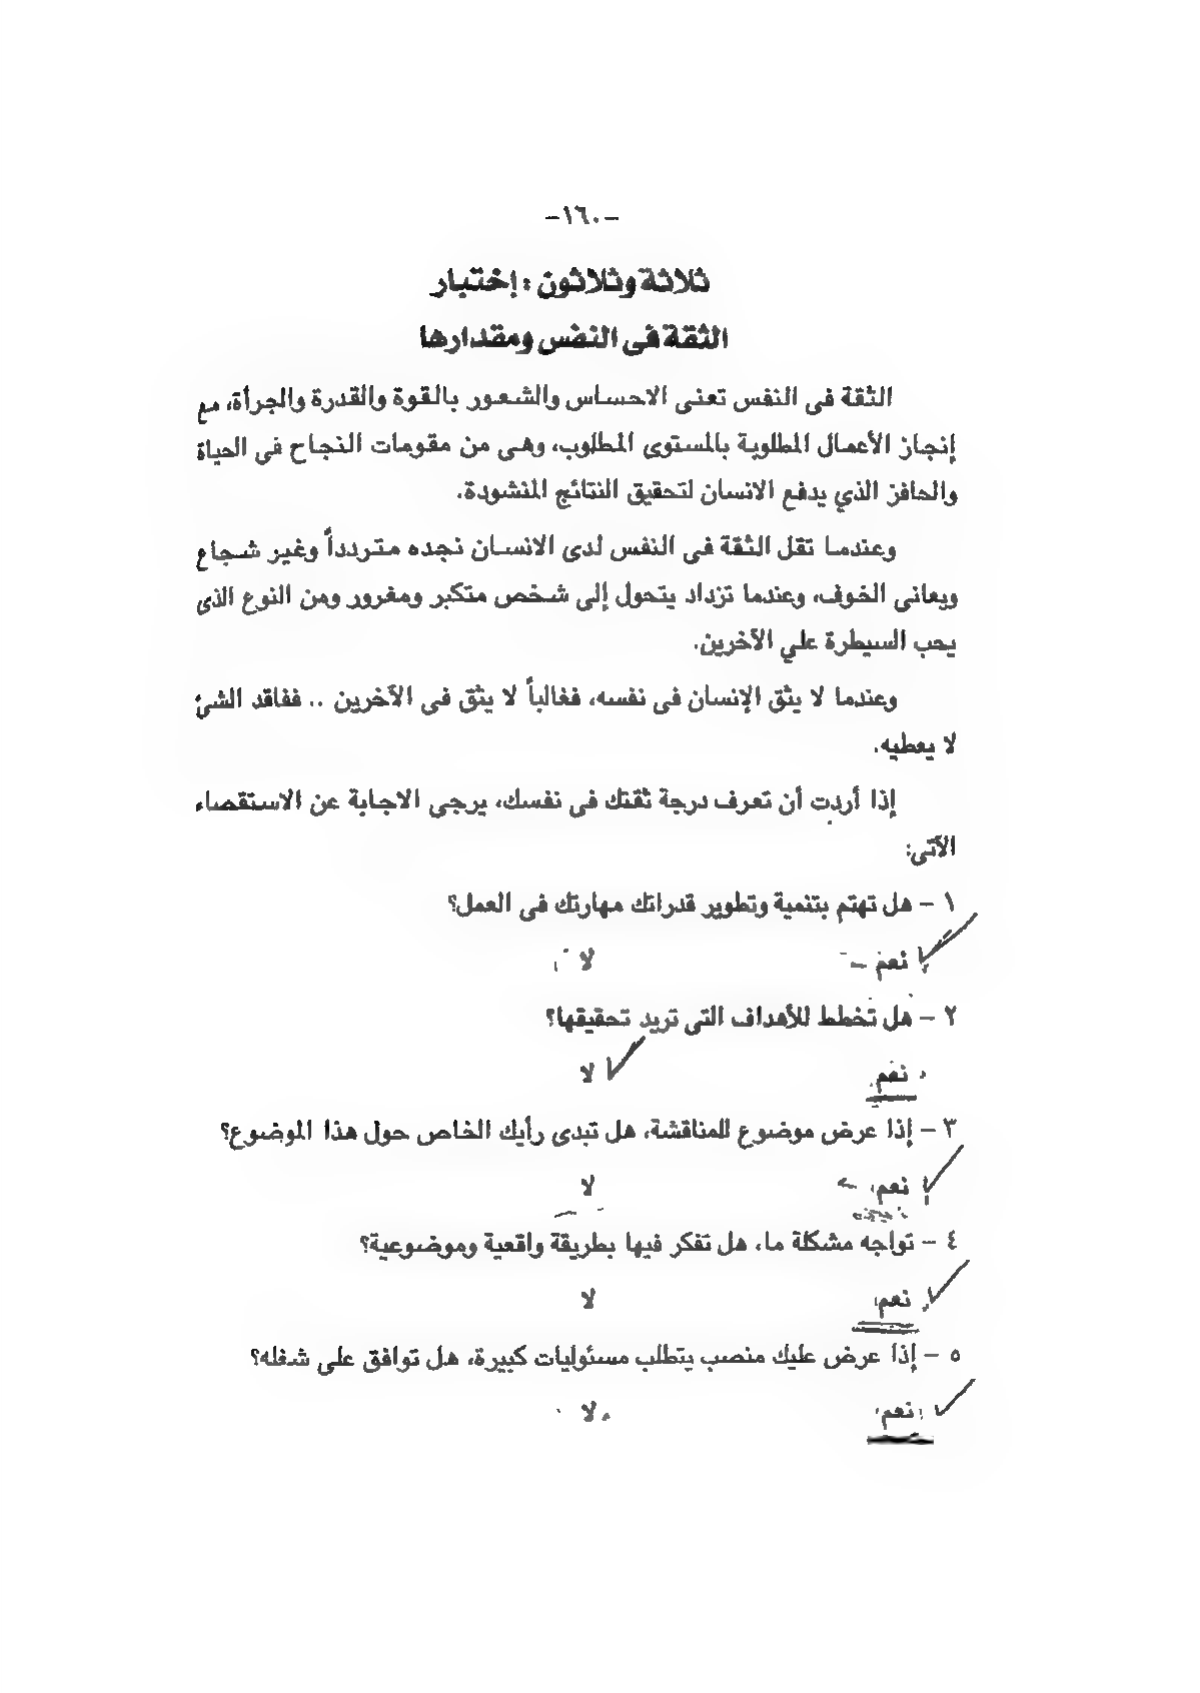 -١٦٠-
ثلاثة وثلاثون : إختبار
الثقة فى النفس ومقدارها
الثقة فى النفس تعنى الاحساس والشعور بالقوة والقدرة والجرأة، مع
إنجاز الأعمال المطلوبة بالمستوى المطلوب، وهى من مقومات النجاح فى الحياة
والحافز الذي يدفع الانسان لتحقيق النتائج المنشودة.
وعندما تقل الثقة فى النفس لدى الانسان نجده متردداً وغير شجاع
ويعانى الخوف، وعندما تزداد يتحول إلى شخص متكبر ومغرور ومن النوع الذى
يحب السيطرة علي الآخرين.
وعندما لا يثق الإنسان فى نفسه، فغالباً لا يثق فى الآخرين .. ففاقد الشئ
لا يعطيه.
إذا أردت أن تعرف درجة ثقتك فى نفسك، يرجى الاجابة عن الاستقصاء
الآتى:
١ – هل تهتم بتنمية وتطوير قدراتك مهارتك فى العمل؟
نعم لا
٢ – هل تخطط للأهداف التى تريد تحقيقها؟
نعم لا
٣ – إذا عرض موضوع للمناقشة، هل تبدى رأيك الخاص حول هذا الموضوع؟
نعم لا
٤ – تواجه مشكلة ما، هل تفكر فيها بطريقة واقعية وموضوعية؟
نعم لا
٥ – إذا عرض عليك منصب يتطلب مسئوليات كبيرة، هل توافق على شغله؟
نعم لا